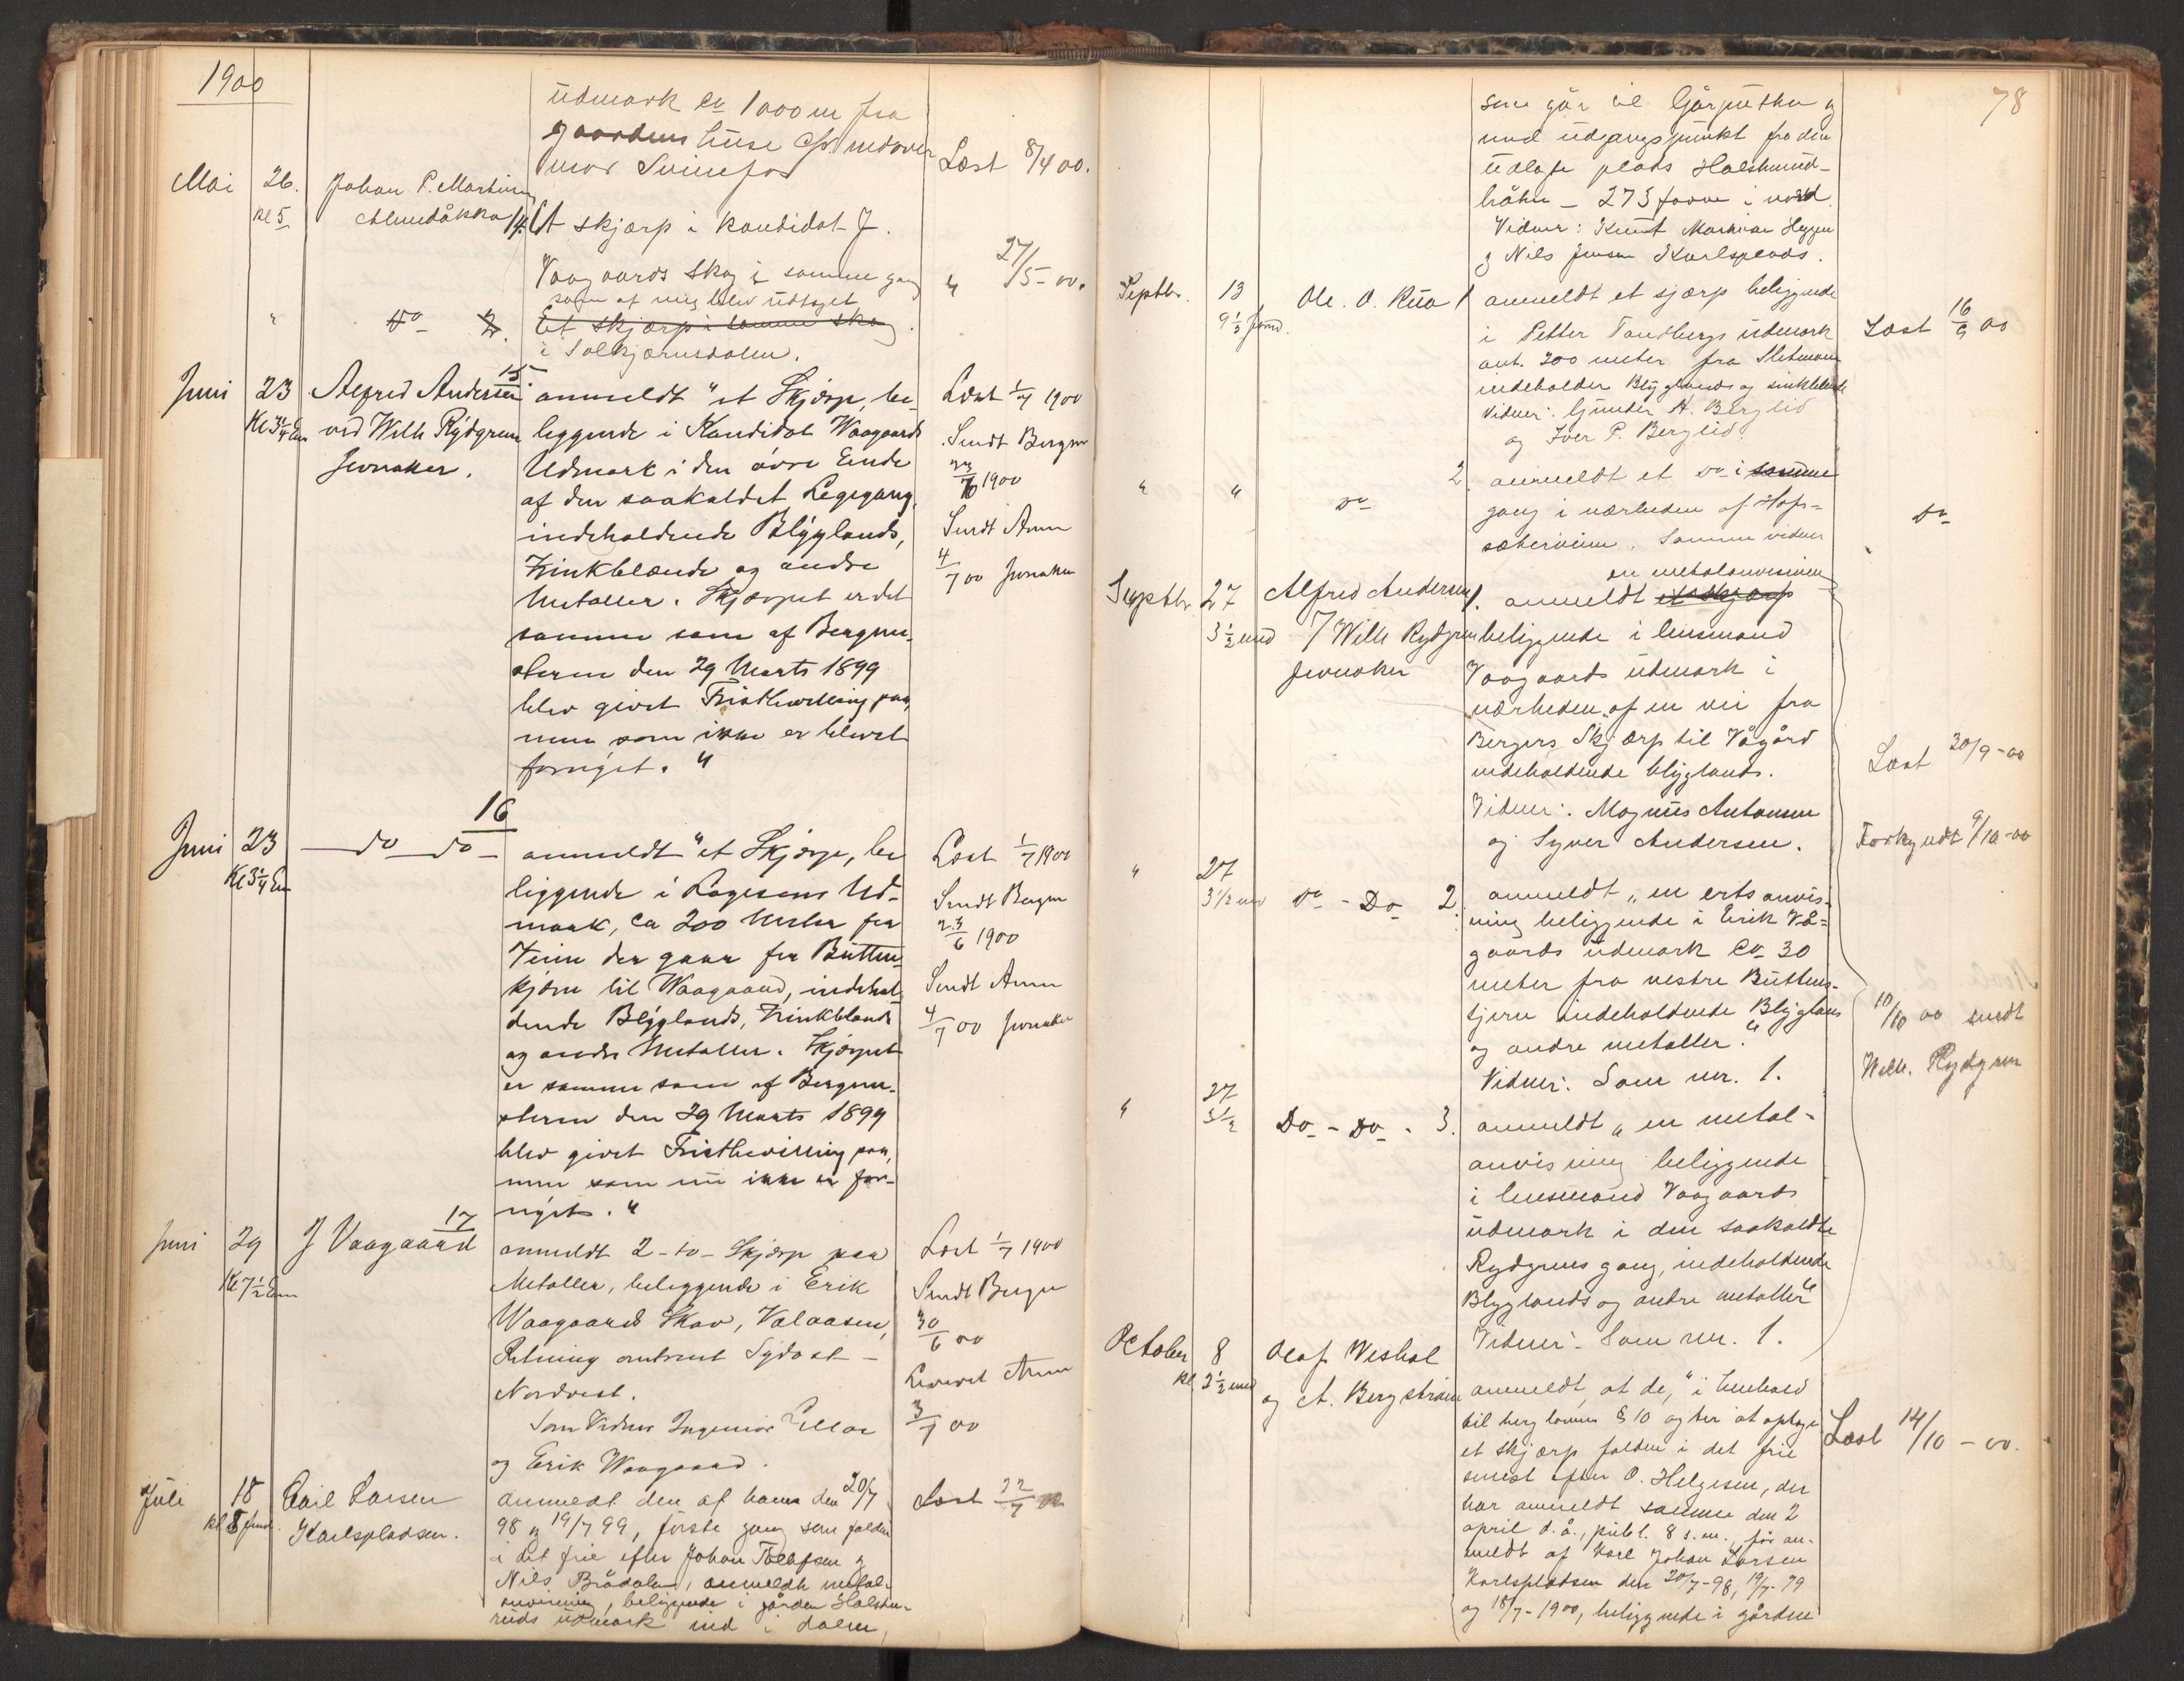 1900
udmark ca 1000 m fra
gaardens huse
mod
Læst 8/4 00.
Mai 26. Johan P. Martinsen
kl 5
14. Et skjærp i kandidat J.
Vaagaards skog i samme gang
27/5-00.
som af mig blev udtaget
" do 2. Et skjærp i samme skog.
i
Juni 23 Alfred Andersen 15 anmeldt "et Skjærp, be-
Læst 1/7 1900
Kl 3 1/4 Em ved Wilh Rydgren
liggende i Kandidat Waagaards
Sendt Bergm
Jevnaker.
Udmark i den øvre Ende
23/6 1900
af den saakaldet Legegang,
indeholdende Blyglands,
Sendt Anm
Zinkblænde og andre
4/7 00 Jevnaker
Metaller. Skjærpet er det
samme som af Bergme-
steren den 29 Marts 1899
blev givet Fristbevilling paa,
men som ikke er blevet
fornyet. "
16
Juni 23 do do anmeldt "et Skjærp, be
Læst 1/7 1900
Kl 3 1/4 Em
liggende i Lagesens Ud-
Sendt Bergm
mark, ca 200 Meter fra
23/6 1900
Veien der gaar fra Butten-
kjern til Waagaard, indehol-
Sendt Anm
dende Blyglands, Zinkblande
4/7 00 Jevnaker
og andre Metaller. Skjærpet
er samme som af Bergme-
steren den 29 Marts 1899
blev givet Fristbevilling paa,
men som nu ikke er for-
nyet. "
17
Juni 29 J Vaagaard anmeldt 2 - to - Skjærp paa
Læst 1/7 1900
Kl 7 1/2 Em
Metaller, beliggende i Erik
Sendt Bergm
Waagaards Skov, Valaasen,
30/6 00
Retning omtrent Sydost -
Nordvest.
Leveret Anm
Som Vidner Ingeniør
3/7 00
og Erik Waagaard.
Juli 18 Carl Larsen anmeldt den af ham den 20/7
Læst 22/7 00
kl 8 fmd. Karlspladsen.
98 og 19/7 99, første gang som falden
i det frie efter Johan Tollefsen og
Nils Brådalen, anmeldte metal-
anvisning, beliggende i gården Halstum-
ruds udmark ind i dalen,
78
som går til og
med udgangspunkt fra den
udlagte plads Halstumrud-
bråten - 275 favne i nord.
Vidner: Knut Markusen Heggen
og Nils Jensen Karlsplads.
Septbr. 13 Ole O. Rua 1 anmeldt et sjærp beliggende
9 1/2 formd.
i Petter Tandbergs udmark
Læst 16/9 00
ant. 200 meter fra
indeholder Blyglands og zinkblende
Vidner: Gunder A. Berglid
og Iver P. Berglid.
" " do 2. anmeldt et do i samme
gang i nærheden af Hofs-
do
sæterveien. Samme vidner
en metalanvisning
Septbr. 27 Alfred Andersen 1. anmeldt et skjærp
3 1/2 emd / Wilh Rydgren beliggende i lensmand
Jevnaker
Vaagaards udmark i
nærheden af en vei fra
Bergers Skjærp til Vågård
indeholdende blyglands.
Læst 30/9-00
Vidner: Magnus Antonsen
og Syver Andersen.
Forkyndt 9/10-00
" 27
3 1/2 emd do - Do 2. anmeldt "en ertsanvis-
ning beliggende i Erik Vå-
gaards udmark ca 30
meter fra vestre Buttens-
tjern indeholdende Blyglans
10/10 00 sendt
og andre metaller."
Wilh. Rydgren
Vidner: Som nr. 1.
" 27
3 1/2 Do - Do - 3. anmeldt "en metal-
anvisning beliggende
i lensmand Vaagaards
udmark i den saakaldte
Rydgrens gang, indeholdende
Blyglands og andre metaller"
Vidner: Som nr. 1.
October 8 Olaf Weshol
kl 2 1/2 emd og A. Bergstrøm anmeldt, at de, "i henhold
til berglovens § 10 agter at optage
et skjærp falden i det frie
Læst 14/10 - 00.
senest efter O. Helgesen, der
har anmeldt samme den 2
april d. å., publ. 8 s.m., før an-
meldt af Karl Johan Larsen
Karlspladsen den 20/7-98, 19/7-99
og 18/7-1900, beliggende i gården